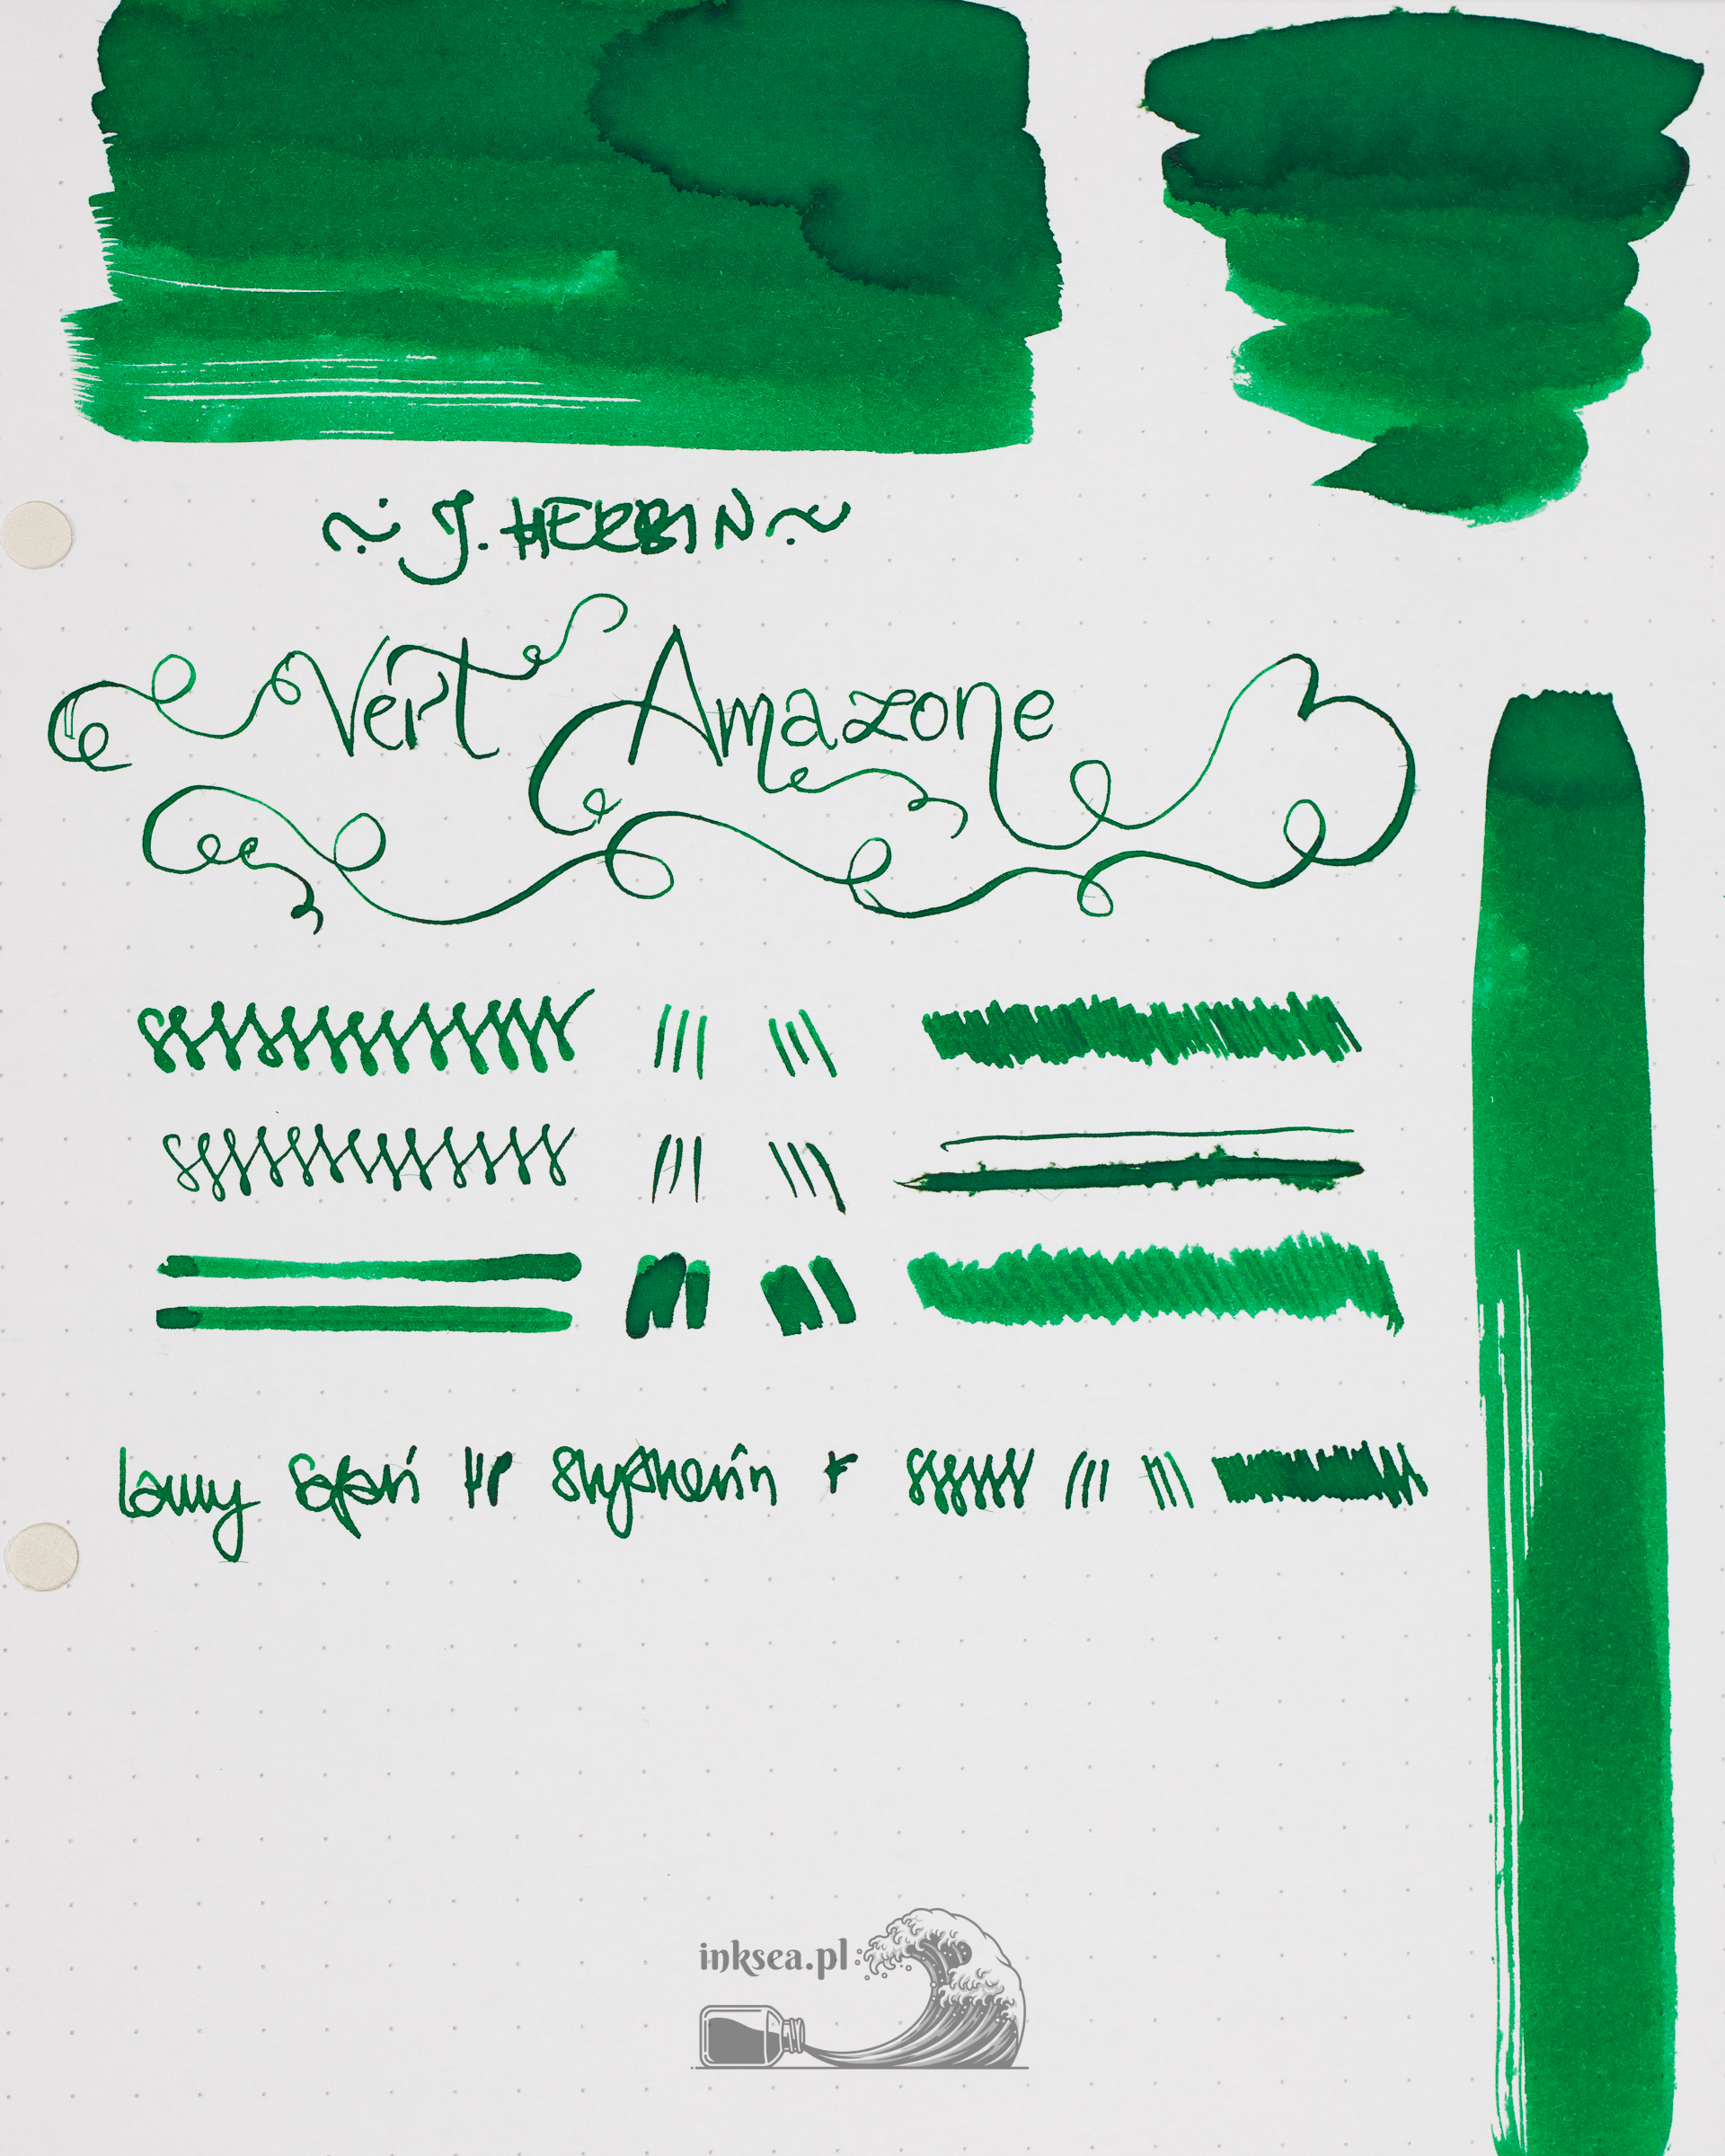 ~ J. HERBIN ~
Vert Amazone
Lamy Safari HP Slytherin F
inksea.pl